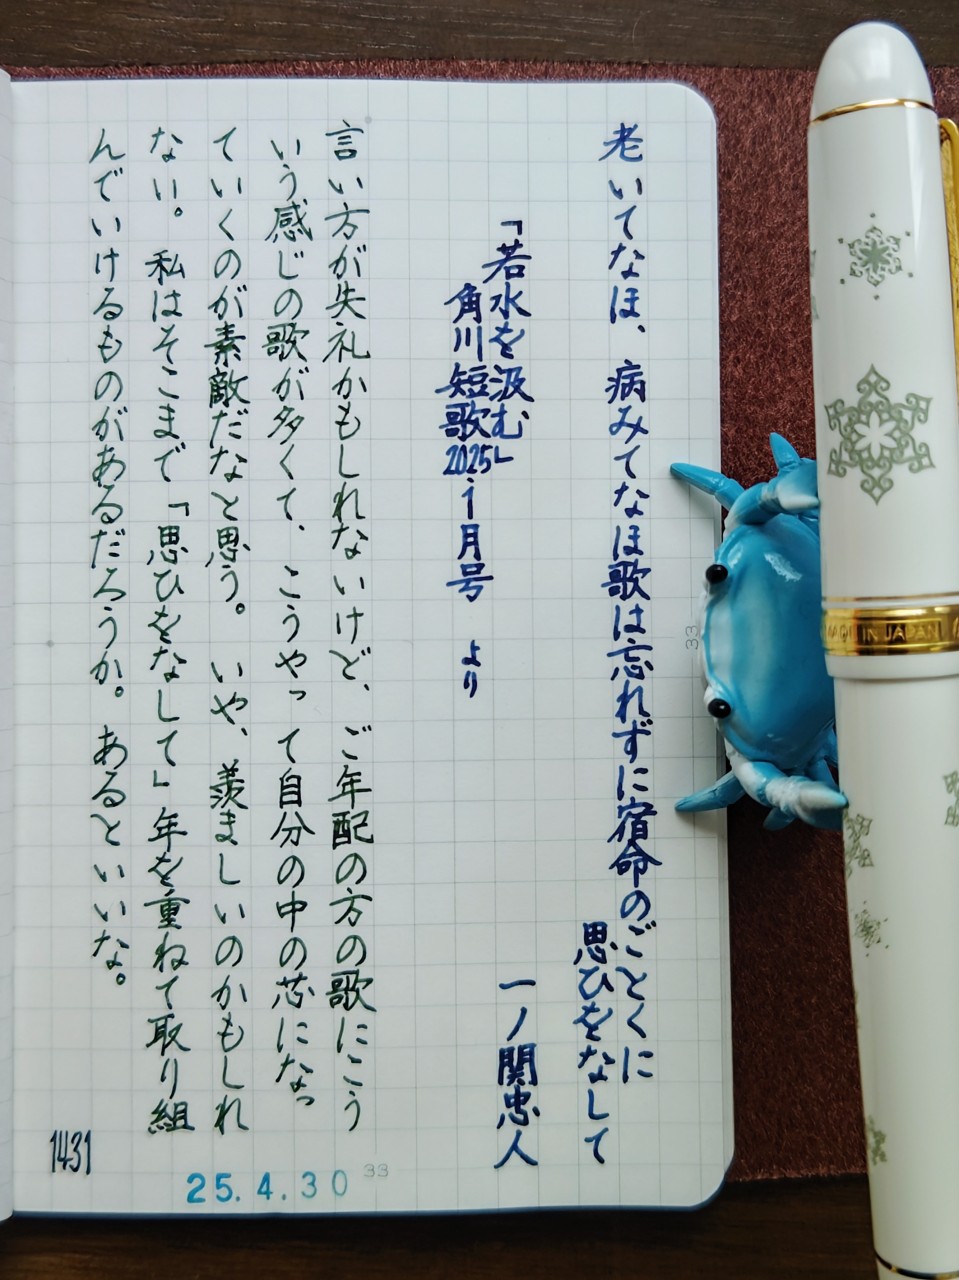 老いてなほ、病みてなほ歌は忘れずに宿命のごとくに
思ひをなして
一ノ関忠人
「若水を汲む」
角川短歌2025.1月号 より
言い方が失礼かもしれないけど、ご年配の方の歌にこう
いう感じの歌が多くて、こうやって自分の中の芯になっ
ていくのが素敵だなと思う。 いや、羨ましいのかもしれ
ない。私はそこまで「思ひをなして」年を重ねて取り組
んでいけるものがあるだろうか。あるといいな。
1431
25.4.30
33
33
MADE IN JAPAN